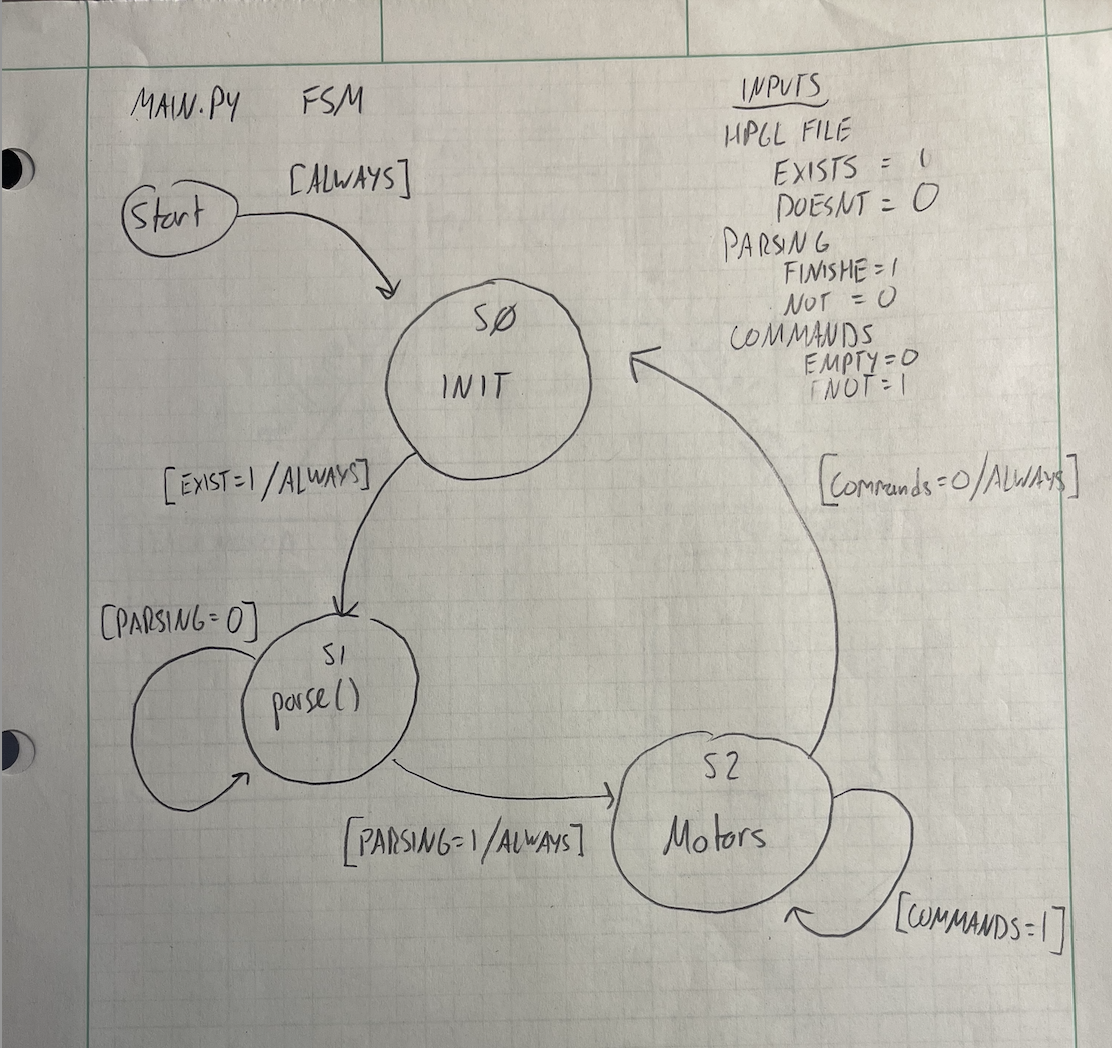 MAIN.PY FSM
INPUTS
HPGL FILE
EXISTS = 1
DOESNT = 0
PARSING
FINISHE = 1
NOT = 0
COMMANDS
EMPTY = 0
NOT = 1
[ALWAYS]
Start
SØ
INIT
[EXIST=1/ALWAYS]
[Commands=0/ALWAYS]
[PARSING=0]
S1
parse()
S2
Motors
[PARSING=1/ALWAYS]
[COMMANDS=1]